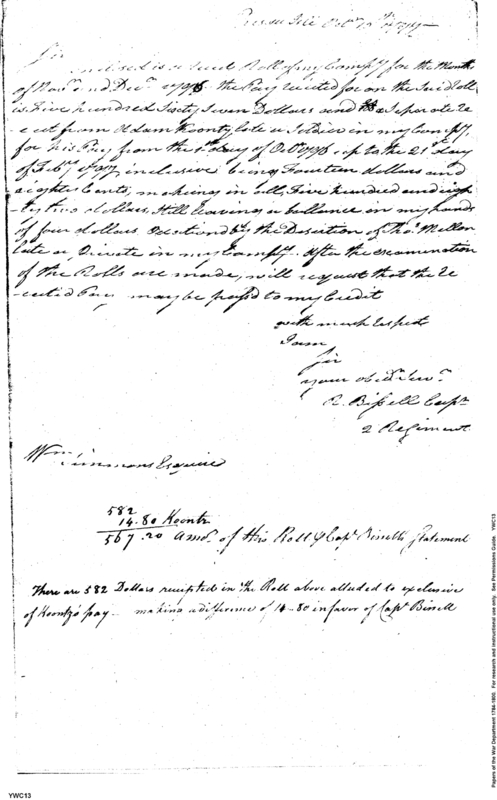 Presqu Isle Oct.
Sir
Inclosed is a Receipt Roll of my Compy for the Months
of Novr. and Decr. 1796. the Pay receited for on the Said Roll
is Five hundred Sixty Seven Dollars and a Separate re
-ceit from Adam Koontz late a Soldier in my Compy.
for his Pay from the 1st. day of Octr. 1796 up to the 21st day
of Feby. 1797 inclusive being Fourteen dollars and
eighty Cents, making in all, Five hundred and eigh
-ty two dollars, Still leaving a ballance in my hands
of four dollars Occationd by the Desertion of Thos. Mellon
late a Private in my Compy. After the examination
of the Rolls are made, will request that the re
-ceited Pay may be pass'd to my Credit
with much respect
I am
Sir
your obedt. Servt.
R. Bissell Captn
2 Regiment
Wm. Simmons Esquire
582
14.80 Koontz
567.20 amot. of this Roll & Capt. Bissells Statement
There are 582 Dollars receipted in the Roll above alluded to exclusive
of Koontz's pay making a difference of 14.80 in favor of Capt Bissell
Papers of the War Department 1784-1800. For research and instructional use only. See Permissions Guide. YWC13
YWC13